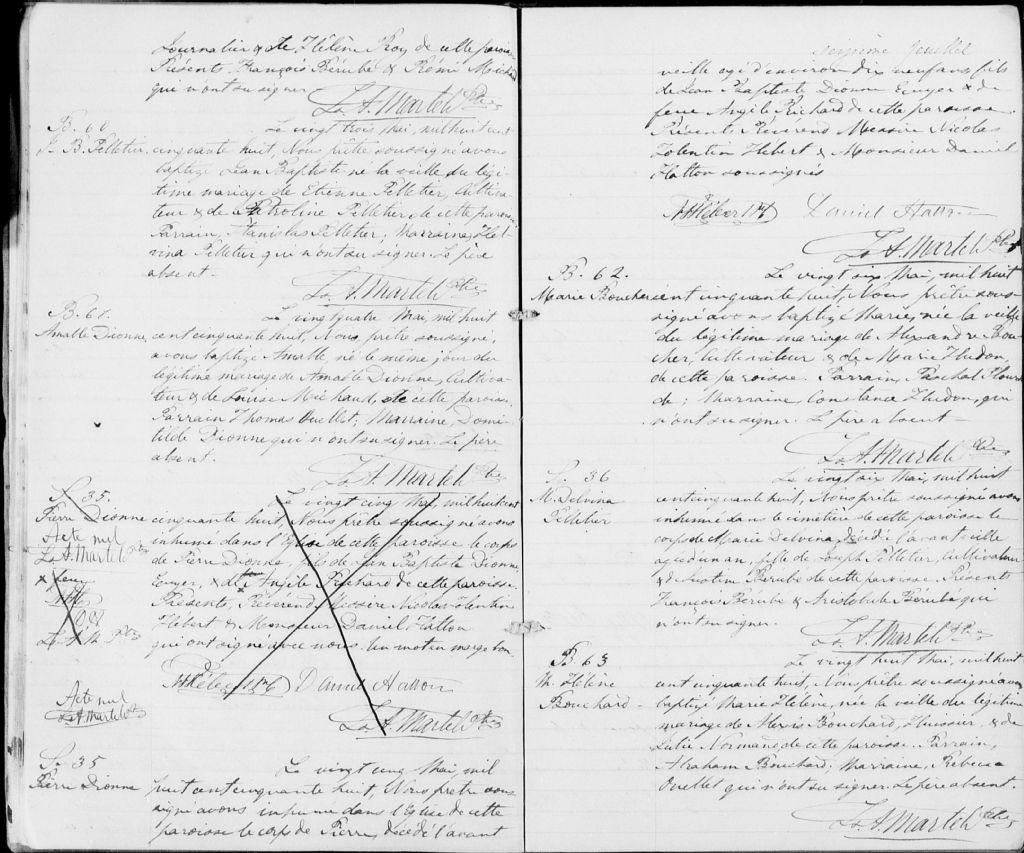 Journalier & de Hélène Roy de cette paroisse
Présents François Bérubé & Rémi Michaud
qui n'ont su signer
Ls A. Martel Ptre
B. 60
J. B. Pelletier
Le vingt trois Mai, mil huit cent
cinquante huit, Nous prêtre soussigné avons
baptizé Jean Baptiste né la veille du légi-
time mariage de Etienne Pelletier, Cultiva-
teur & de Petroline Pelletier de cette paroisse
Parrain, Stanislas Pelletier; Marraine,
Pelletier qui n'ont su signer. Le père
absent -
Ls A. Martel Ptre
B. 61.
Amable Dionne
Le vingt quatre Mai, mil huit
cent cinquante huit, Nous prêtre soussigné,
avons baptizé Amable né le même jour du
légitime mariage de Amable Dionne, Cultiva-
teur & de Louise Michaud, de cette paroisse.
Parrain Thomas Ouellet; Marraine, Domi-
tilde Dionne qui n'ont su signer. Le père
absent.
Ls A. Martel Ptre
S. 35.
Pierre Dionne
Acte nul
Ls A. Martel Ptre
Le vingt cinq Mai, mil huit cent
cinquante huit, Nous prêtre soussigné avons
inhumé dans l'Eglise de cette paroisse le corps
de Pierre Dionne, fils de Jean Baptiste Dionne
Ecuyer, & de Angèle Richard de cette paroisse.
Présents, Révérend Messire Nicolas Tolentin
Hébert & Monsieur Daniel Hatton
qui ont signé avec nous. Un mot en marge bon.
x feue
L. A. M. Ptre
N T Hébert Ptre Daniel Hatton
Ls A. Martel Ptre
Acte nul
Ls A. Martel Ptre
S. 35
Pierre Dionne
Le vingt cinq Mai, mil
huit cent cinquante huit, Nous prêtre sous-
signé avons inhumé dans l'Eglise de cette
paroisse le corps de Pierre, décédé l'avant
seizième feuillet
veille agé d'environ dix neuf ans fils
de Jean Baptiste Dionne Ecuyer & de
feue Angèle Richard de cette paroisse.
Présents Révérend Messire Nicolas
Tolentin Hébert & Monsieur Daniel
Hatton soussignés
N T Hébert Ptre Daniel Hatton
Ls A. Martel Ptre
B. 62.
Marie Boucher
Le vingt six Mai, mil huit
cent cinquante huit, Nous prêtre sous-
signé avons baptizé Marie, née la veille
du légitime mariage de Alexandre Bou-
cher, Cultivateur & de Marie Hudon,
de cette paroisse. Parrain, Paschal Plour-
de; Marraine, Constance Hudon, qui
n'ont su signer. Le père absent -
Ls A. Martel Ptre
S. 36
M. Delvina
Pelletier
Le vingt six Mai, mil huit
cent cinquante huit, Nous prêtre soussigné avons
inhumé dans le cimetière de cette paroisse le
corps de Marie Delvina, décédée l'avant veille
agée d'un an, fille de Joseph Pelletier, Cultivateur
& de Justine Bérubé de cette paroisse. Présents
François Bérubé & Aristobule Bérubé qui
n'ont su signer.
Ls A. Martel Ptre
B 63
M. Hélène
Bouchard -
Le vingt huit Mai, mil huit
cent cinquante huit, Nous prêtre soussigné avons
baptizé Marie Hélène, née la veille du légitime
mariage de Alexis Bouchard, Huissier, & de
Julie Normand, de cette paroisse. Parrain,
Abraham Bouchard; Marraine, Rebecca
Ouellet qui n'ont su signer. Le père absent.
Ls A. Martel Ptre